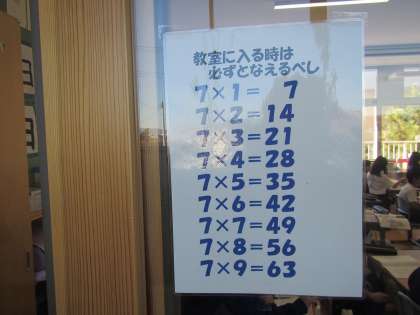 教室に入る時は
必ずとなえるべし
7×1= 7
7×2=14
7×3=21
7×4=28
7×5=35
7×6=42
7×7=49
7×8=56
7×9=63